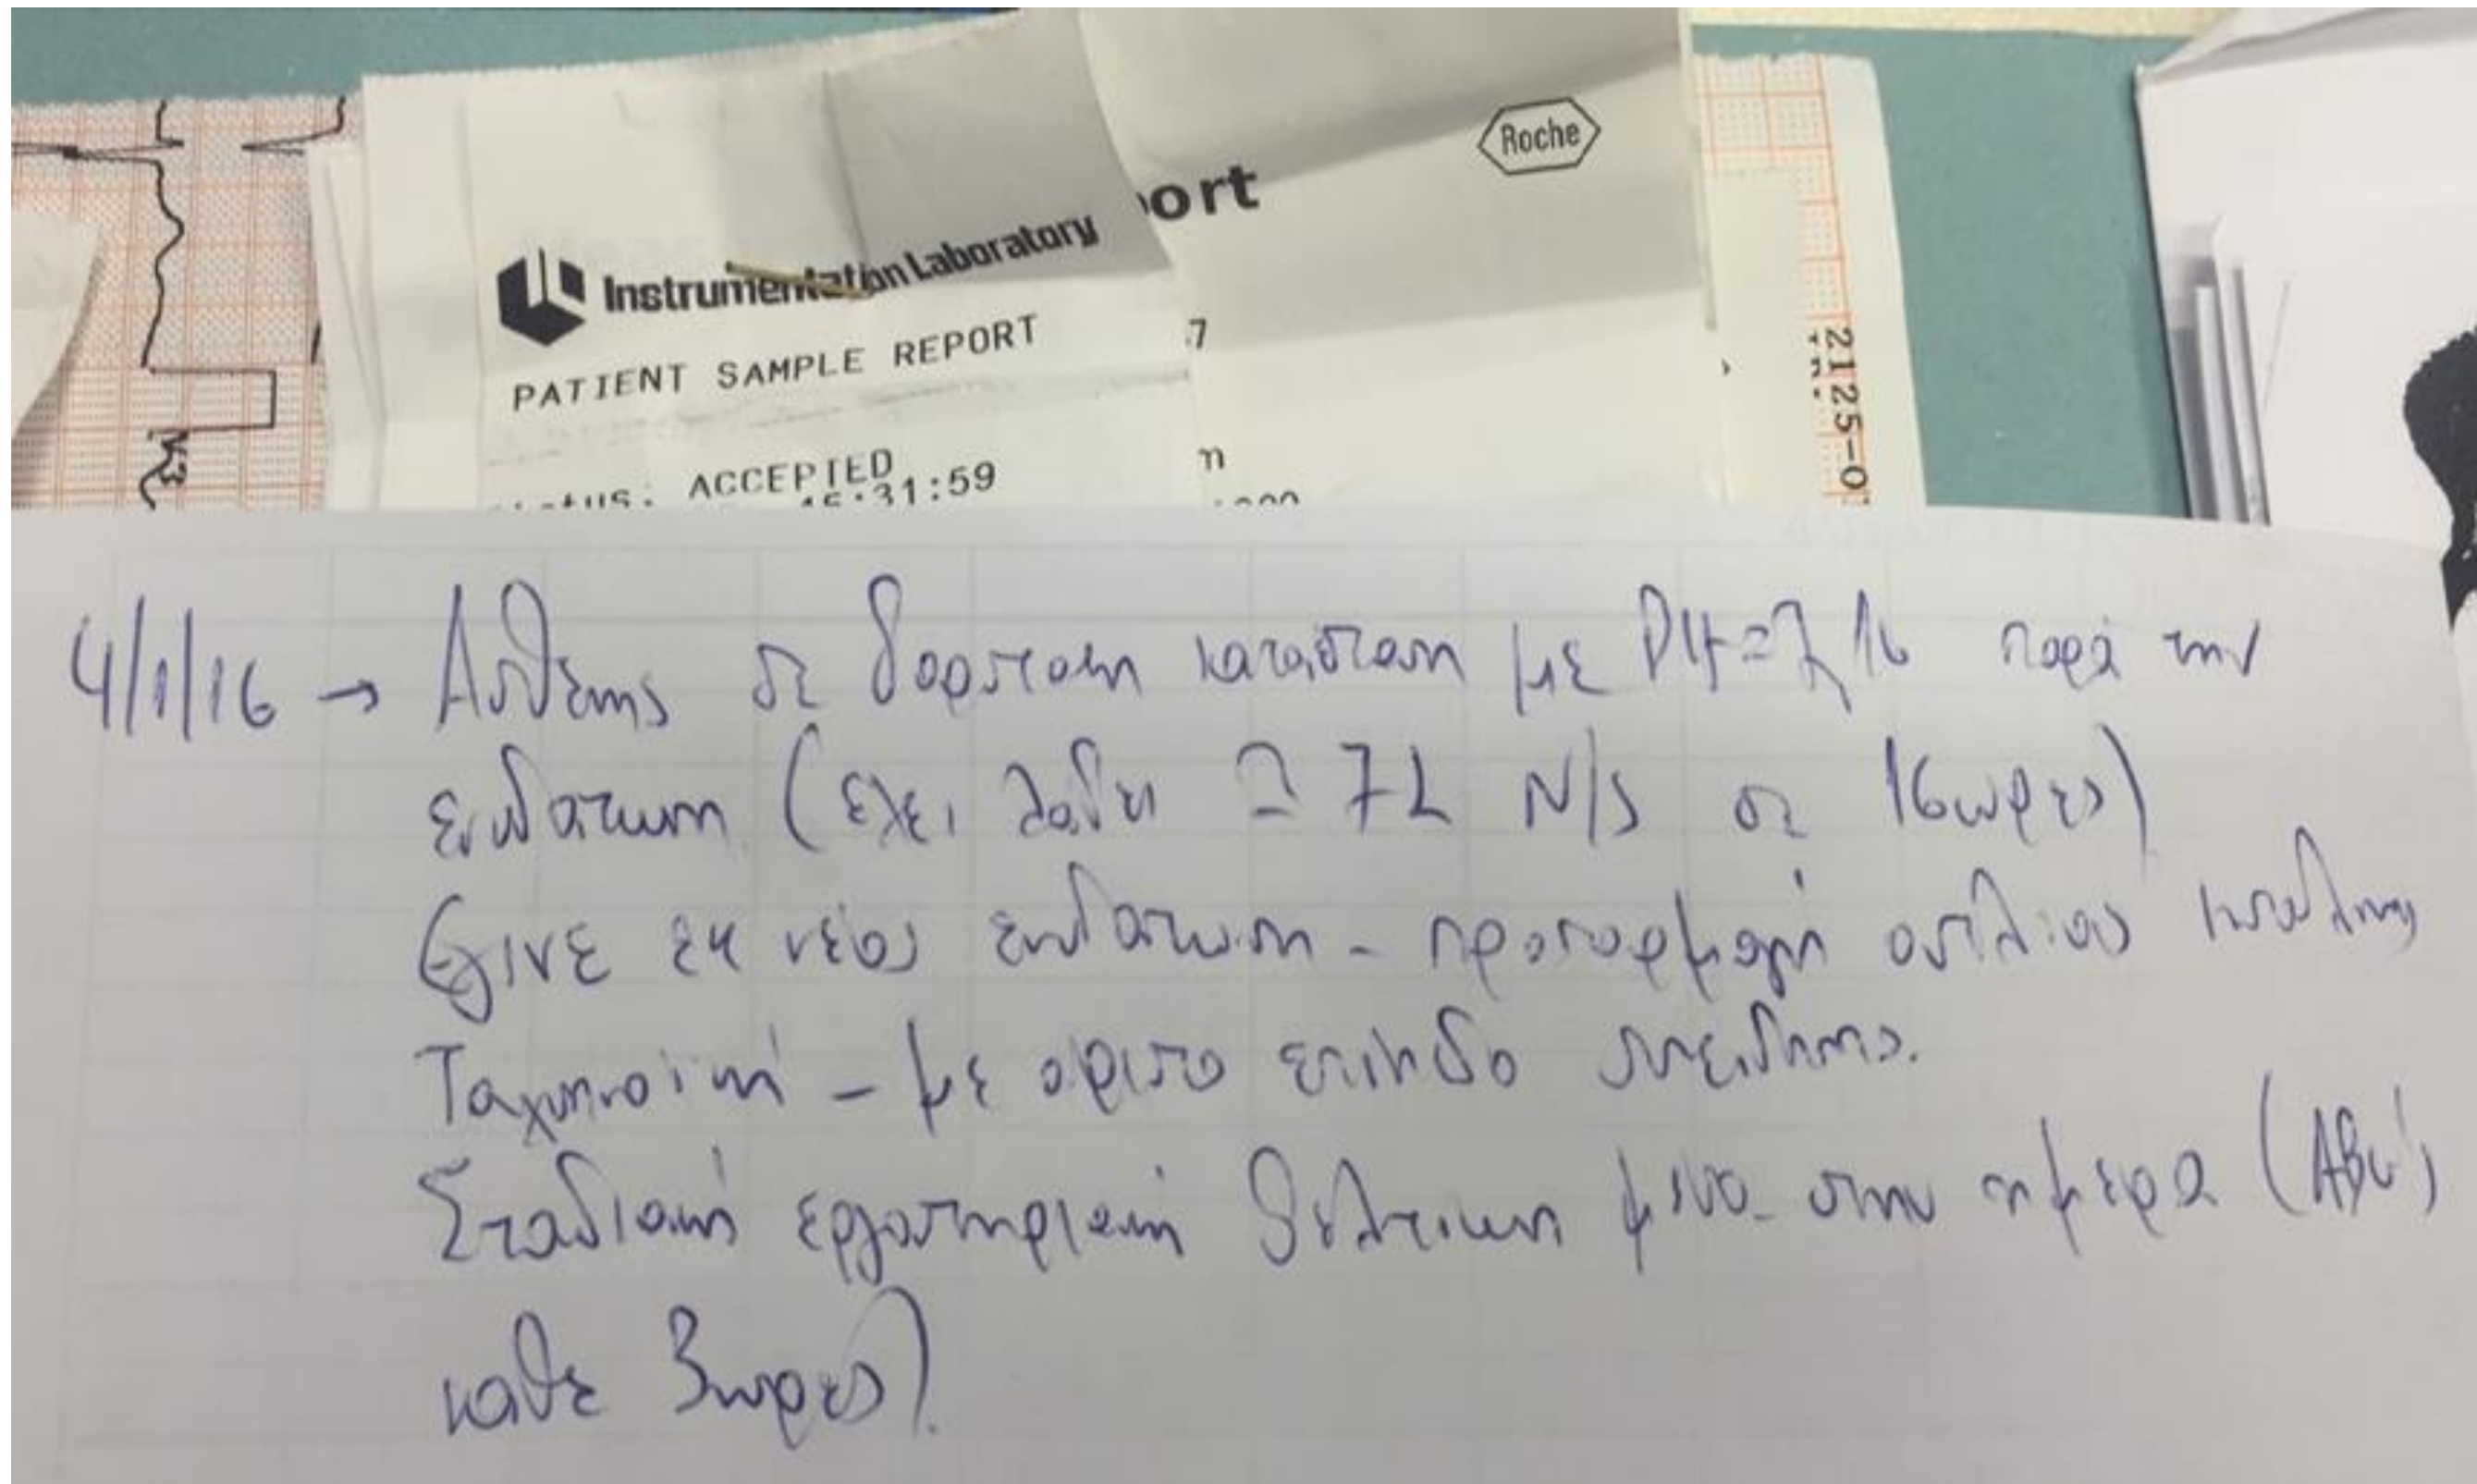 Roche
ort
Instrumentation Laboratory
PATIENT SAMPLE REPORT
7
ACCEPTED
:31:59
n
V3
2125-0
4/1/16 → Ασθενης σε βαρεια κατασταση με PH=7,16 παρά την
ενυδατωση (εχει λαβει ≃ 7L N/S σε 16ωρες)
Εγινε εκ νέου ενυδατωση - προσαρμογή αντλιας ινσουλινης
Ταχυπνοϊκή - με αριστο επιπεδο συνειδησης.
Σταδιακή εργαστηριακή βελτιωση μεσα στην ημερα (ABG's
καθε 3ωρες).